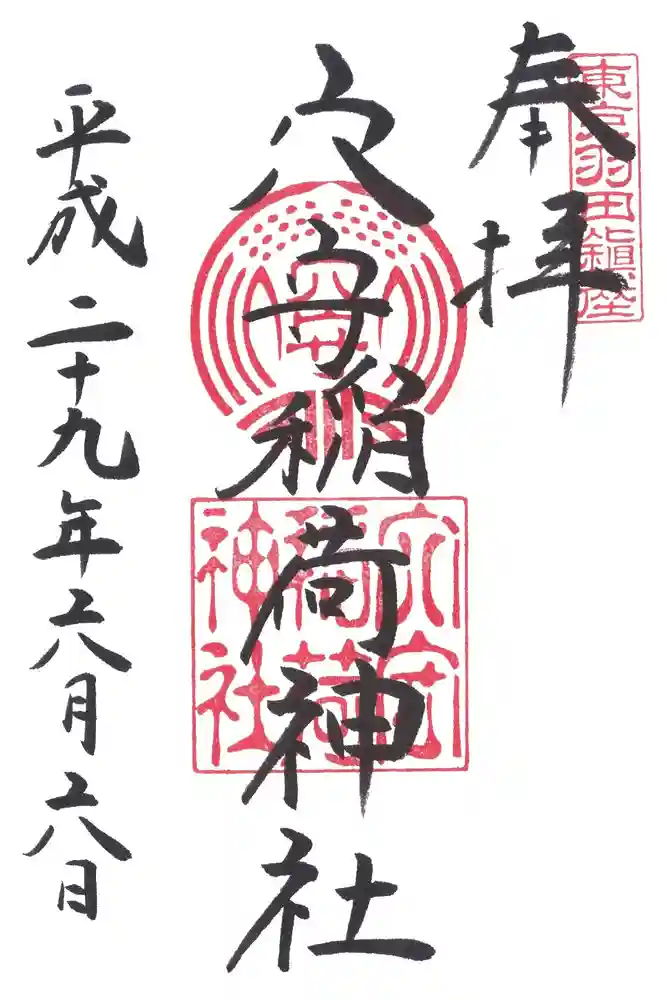 奉拝
東京羽田鎮座
穴守稲荷神社
穴守
穴守稲荷神社
平成二十九年六月六日